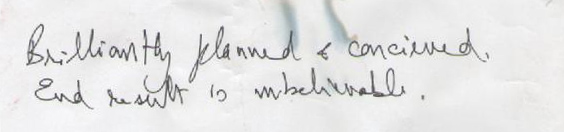 Brilliantly planned & concieved.
End result is unbelievable.